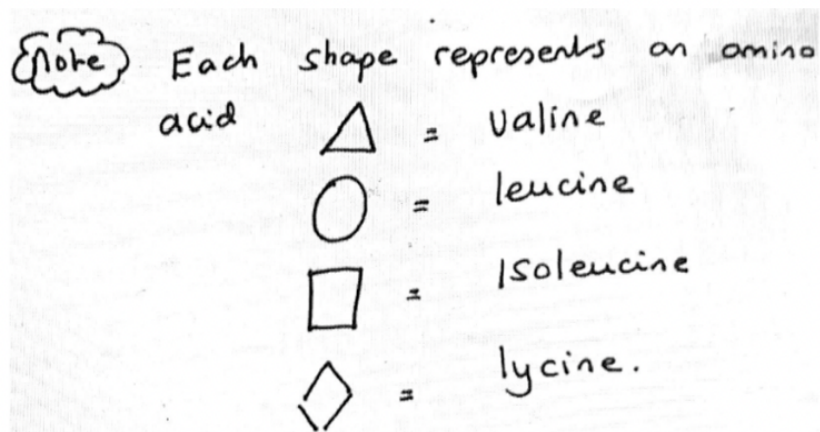 note Each shape represents an amino
acid △ = Valine
= leucine
= Isoleucine
= lycine.